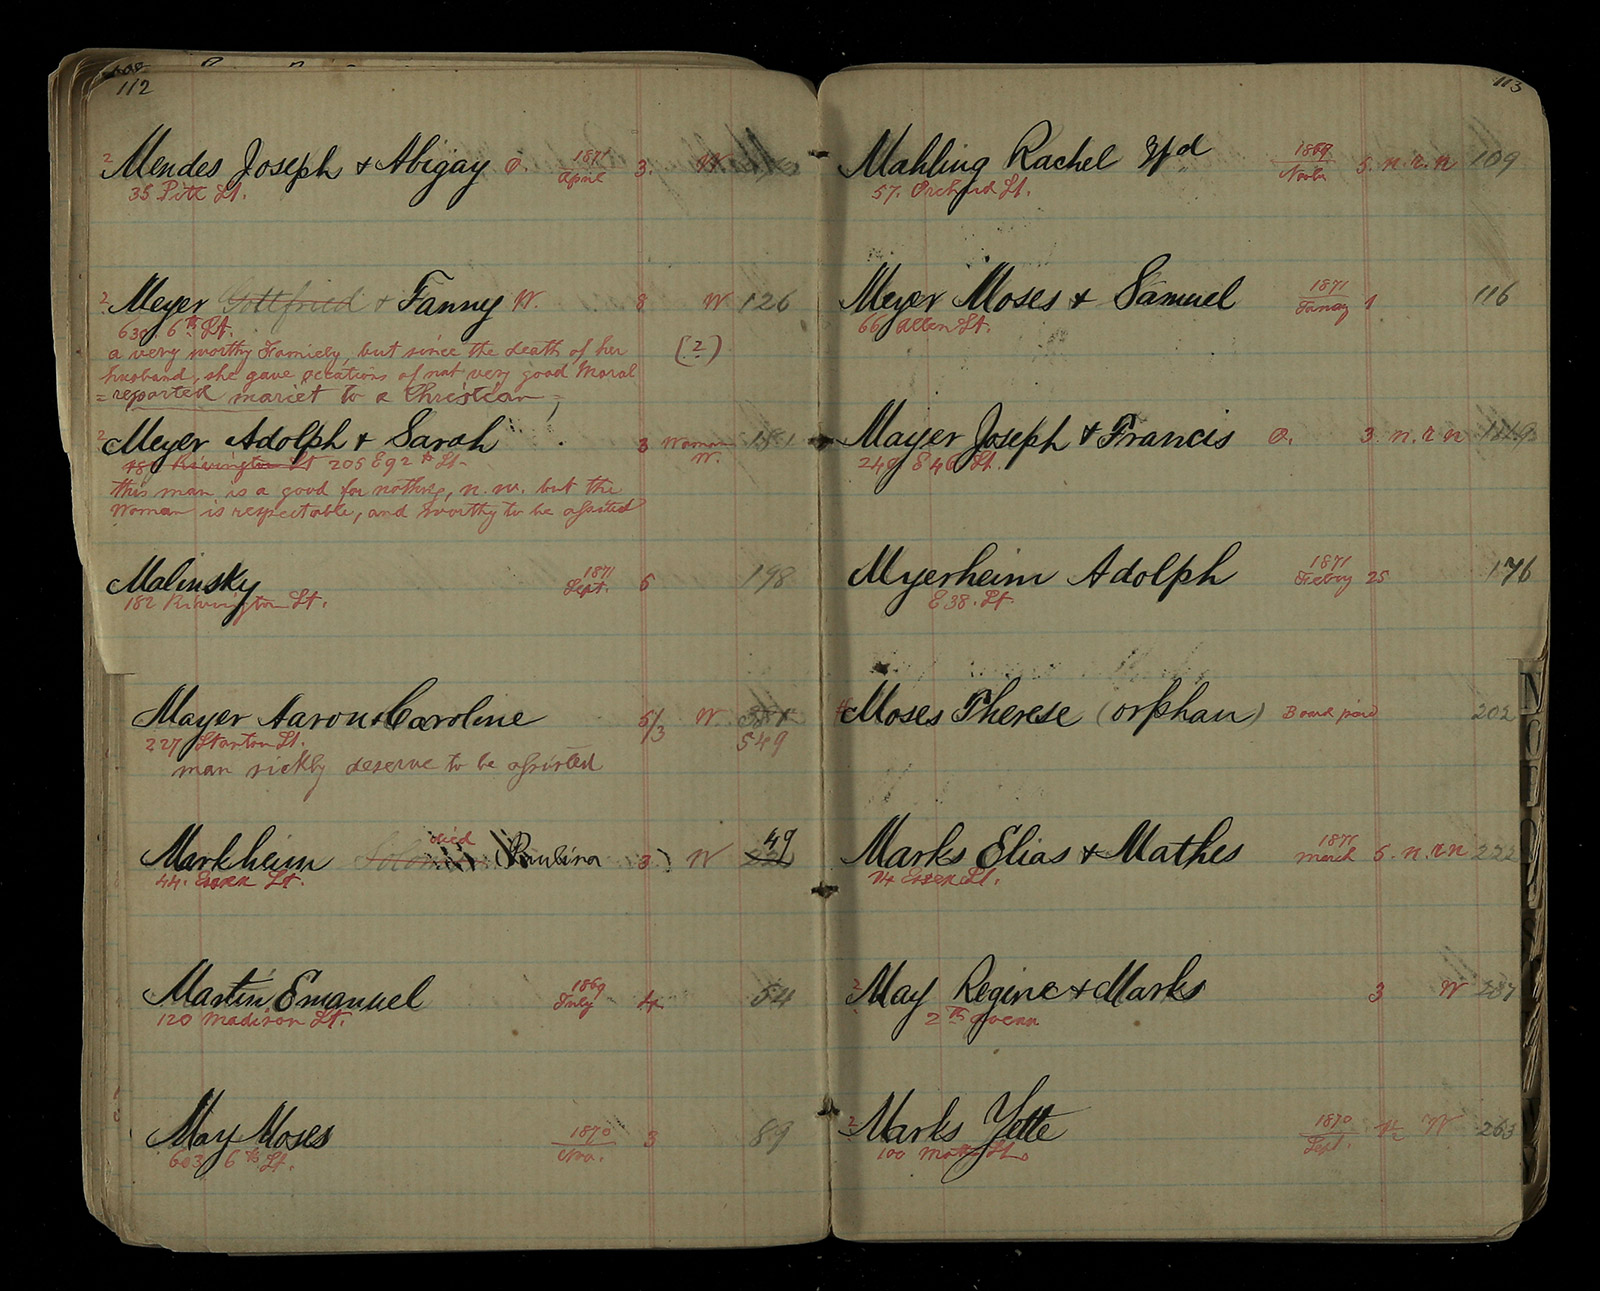 112
2 Mendes Joseph & Abigay O. 1871 April 3. W.
35 Pitt St.
2 Meyer Gottfried & Fanny W. 8 W 126
630. 6th St.
a very worthy Familey, but since the death of her (2)
husband, she gave occations of not very good Moral
= reported mariet to a Christian =
2 Meyer Adolph & Sarah 3 Woman W. 181
Rivington St 205 E 92th St.
this man is a good for nothing, n.w. but the
Woman is respectable, and worthy to be assisted
Malinsky 1871 Sept. 6 198
182 Rivington St.
Mayer Aaron & Caroline 5/3 W
549
227 Stanton St.
man sickly deserve to be assisted
Markheim Solomon died (Paulina 3) W 49
44. Essex St.
Martin Emanuel 1869 July 4 54
120 Madison St.
May Moses 1870 Nov. 3 89
603 6th St.
113
Mahling Rachel Wd 1869 Novbr 5. n.r.n 109
57. Orchard St.
Meyer Moses & Samuel 1871 Janay 1 116
66 Allen St.
Mayer Joseph & Francis O. 3. n.r.n 149
249 E 46 St.
Myerheim Adolph 1871 Feb'y 25 176
E 38. St.
Moses Therese (orphan) Board paid 202
Marks Elias & Mathes 1871 March 5. n.r.n 222
74 Essex St.
2 May Regine & Marks 3 W 237
2th Avenu
2 Marks Yette 1870 Sept. 4 W 263
100 Mott St.